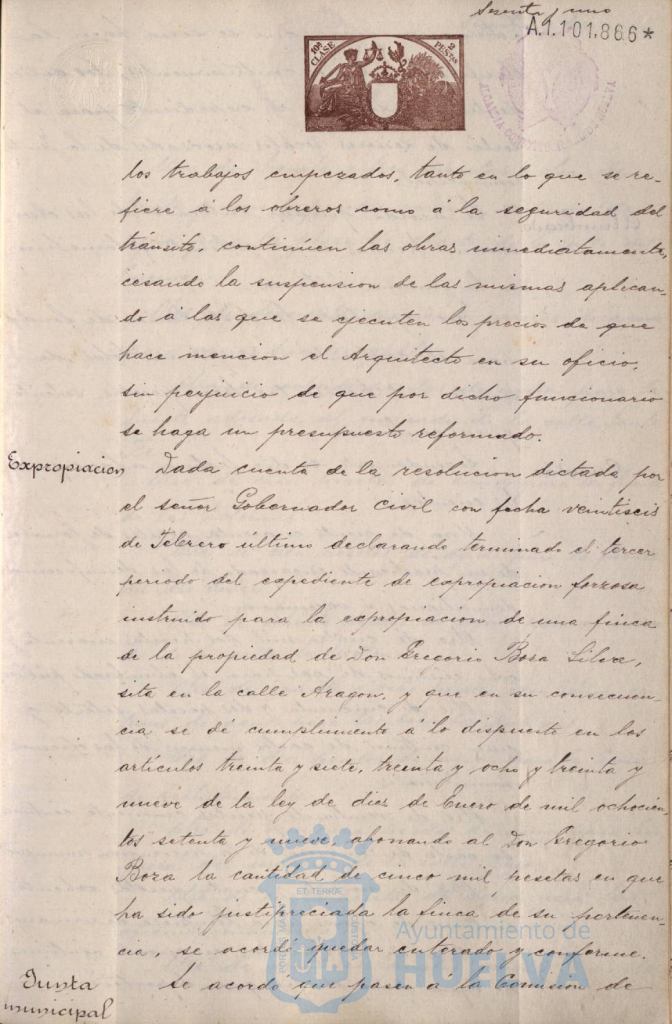 Sesenta y uno
A.1.101.866*
10ª CLASE
2 PESETAS
los trabajos empezados, tanto en lo que se re-
fiere á los obreros como á la seguridad del
tránsito, continúen las obras inmediatamente,
cesando la suspension de las mismas aplican-
do á las que se ejecuten los precios de que
hace mencion el Arquitecto en su oficio,
sin perjuicio de que por dicho funcionario
se haga un presupuesto reformado.
Expropiacion Dada cuenta de la resolucion dictada por
el señor Gobernador Civil con fecha veintiseis
de Febrero último declarando terminado el tercer
periodo del expediente de expropiacion forzosa
instruido para la expropiacion de una finca
de la propiedad de Don Gregorio Bora
sita en la calle Aragon, y que en su consecuen-
cia se dé cumplimiento á lo dispuesto en los
artículos treinta y siete, treinta y ocho y treinta y
nueve de la ley de diez de Enero de mil ochocien-
tos setenta y nueve, abonando al Don Gregorio
Bora la cantidad de cinco mil pesetas en que
ha sido justipreciada la finca de su pertenen-
cia, se acordó quedar enterado y conforme.
Junta municipal Se acordó que pasen á la Comision de
Ayuntamiento de
HUELVA